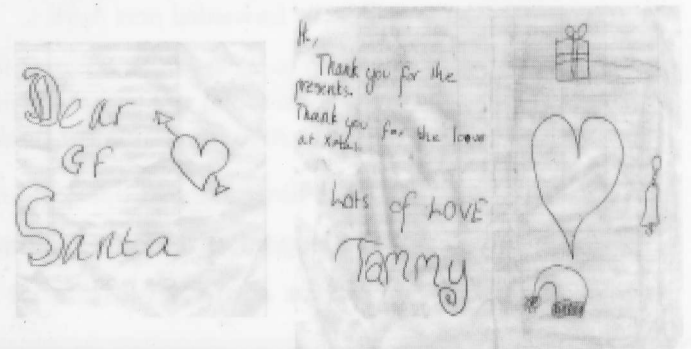 Dear
GF
Santa
Hi,
Thank you for the
presents.
Thank you for the love
at xmas.
Lots of LOVE
Tammy